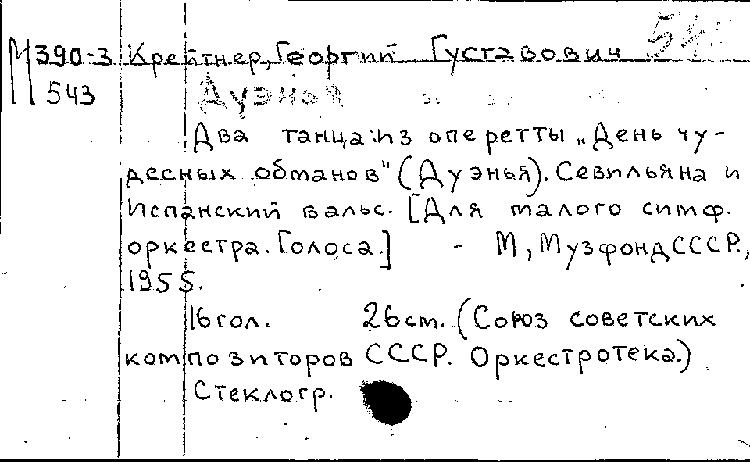 М390-3 Крейтнер, Георгий Густавович 54
543 Дуэнья
Два танца из оперетты „День чу-
десных обманов" (Дуэнья). Севильяна и
Испанский вальс. [Для малого симф.
оркестра. Голоса.] - М, Музфонд СССР,
1955.
16 гол. 26 см. (Союз советских
композиторов СССР. Оркестротека.)
Стеклогр.